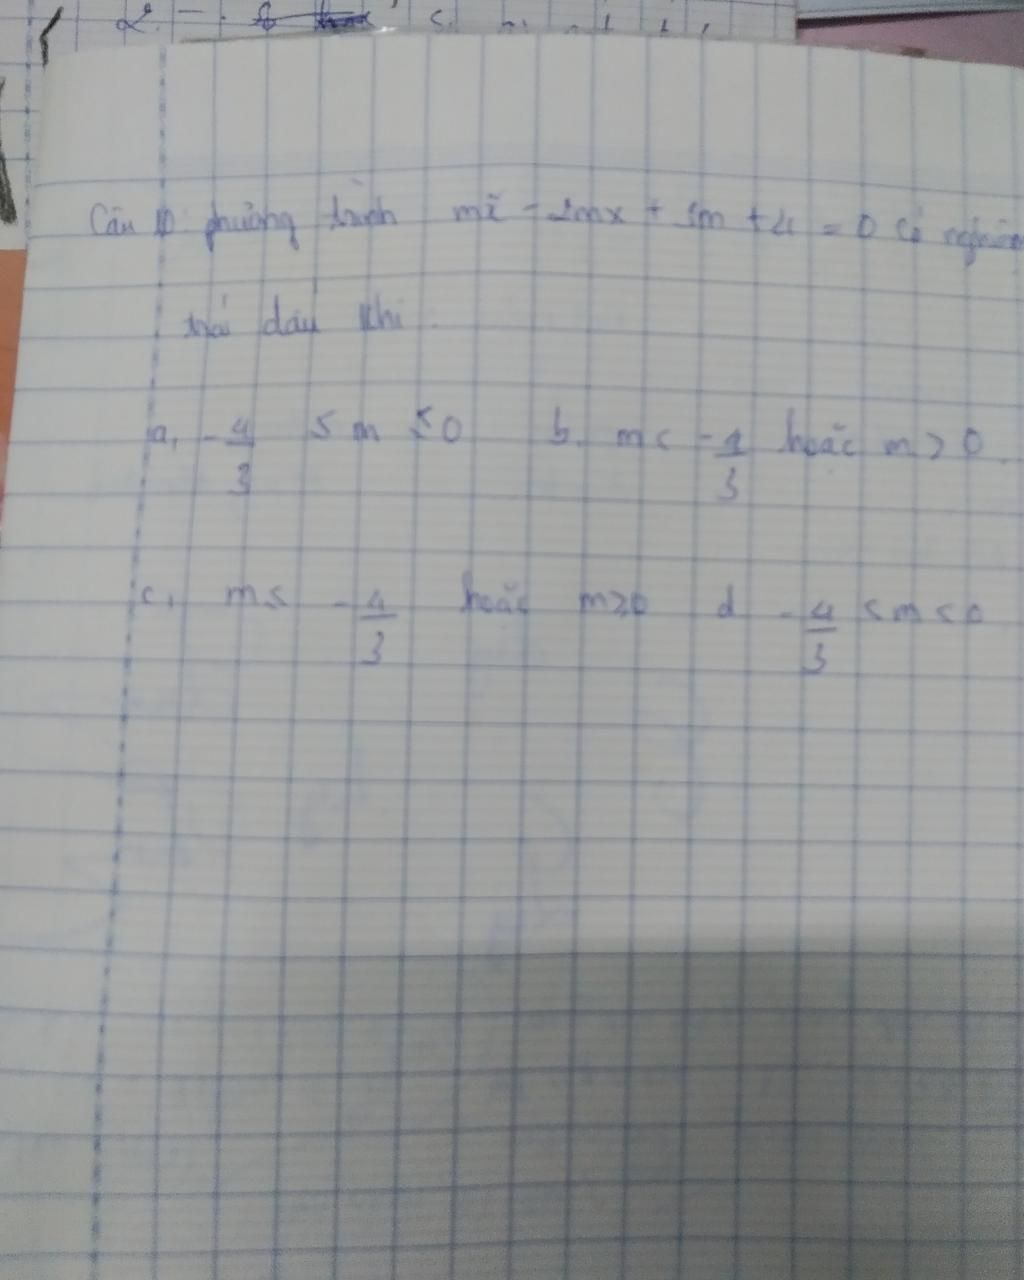 Câu 10: phương trình mx² - 2mx + 3m + 4 = 0 có nghiệm
trái dấu khi
a, -4/3 ≤ m ≤ 0 b. m < -4/3 hoặc m > 0.
c, m ≤ -4/3 hoặc m ≥ 0 d -4/3 < m < 0